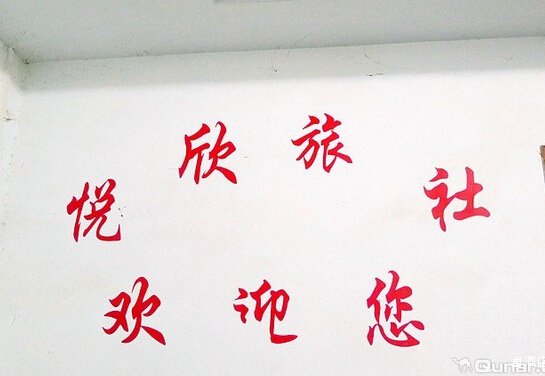 悦欣旅社
欢迎您
Qunar.